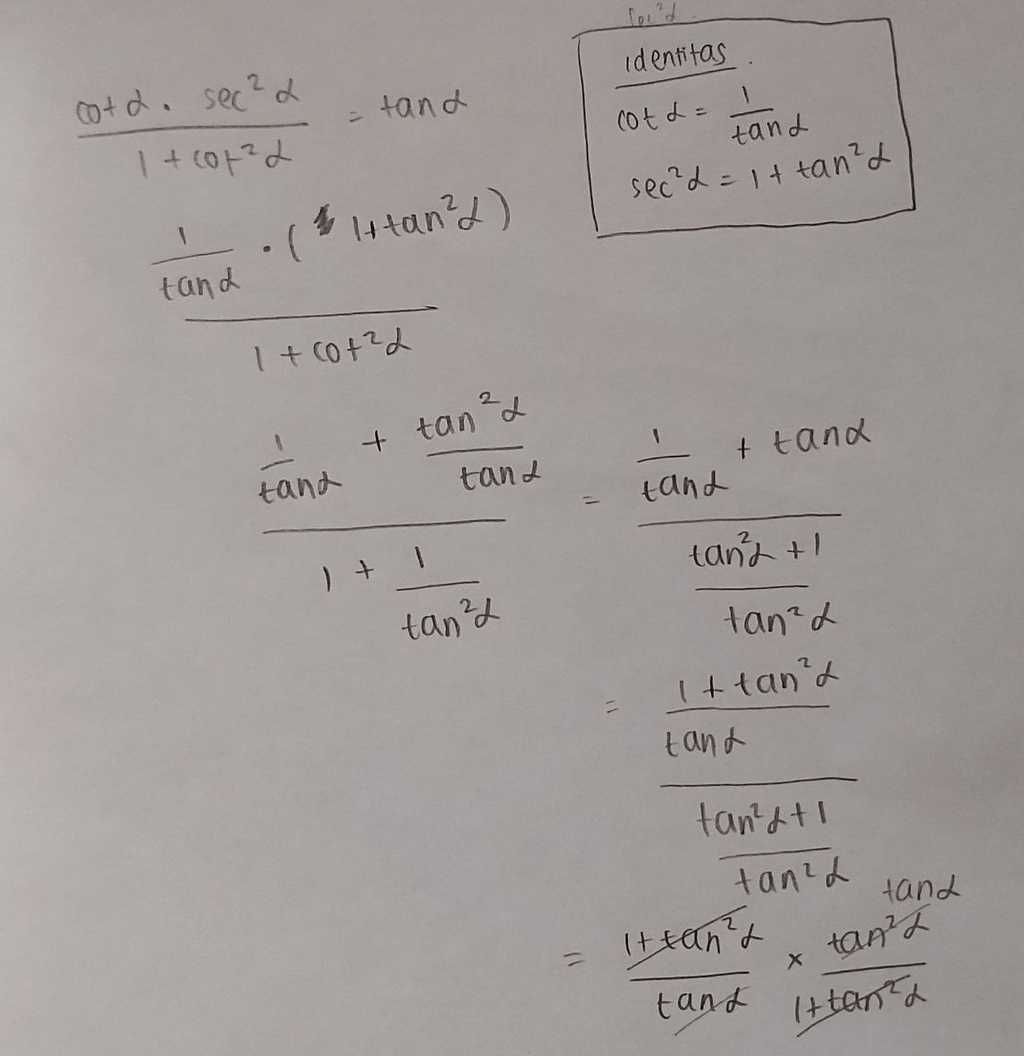 cot α . sec² α / 1 + cot² α = tan α
identitas
cot α = 1 / tan α
sec² α = 1 + tan² α
1 / tan α . ( 1 + tan² α ) / 1 + cot² α
1 / tan α + tan² α / tan α / 1 + 1 / tan² α = 1 / tan α + tan α / tan² α + 1 / tan² α
= 1 + tan² α / tan α / tan² α + 1 / tan² α
tan α
= 1 + tan² α / tan α × tan² α / 1 + tan² α